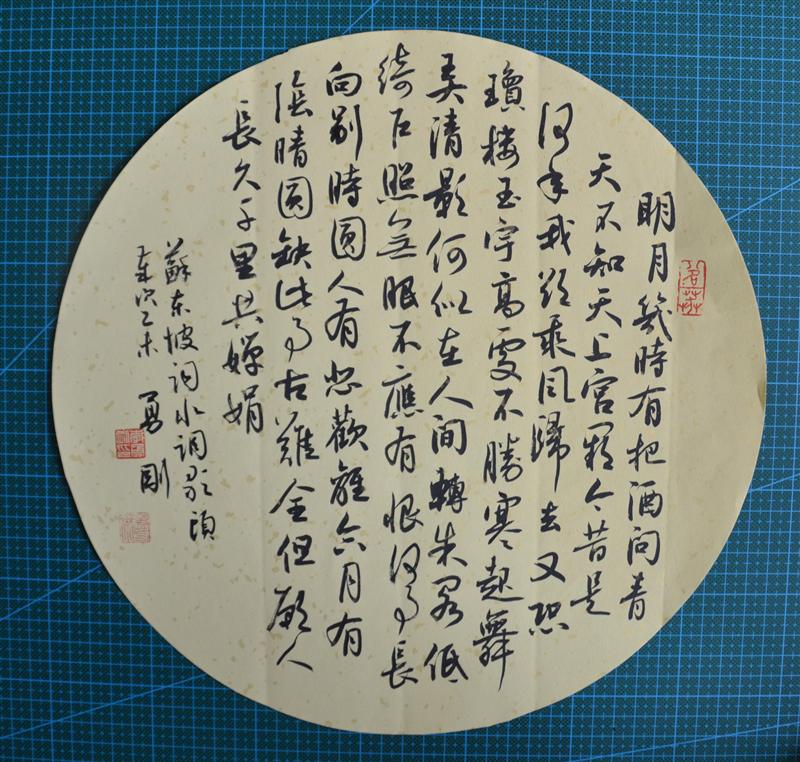 明月幾時有把酒問青
天不知天上宮闕今昔是
何年我欲乘風歸去又恐
瓊樓玉宇高處不勝寒起舞
弄清影何似在人間轉朱閣低
綺户照無眠不應有恨何事長
向別時圓人有悲歡離合月有
陰晴圓缺此事古難全但願人
長久千里共嬋娟
蘇東坡詞水調歌頭
乙未 勇剛